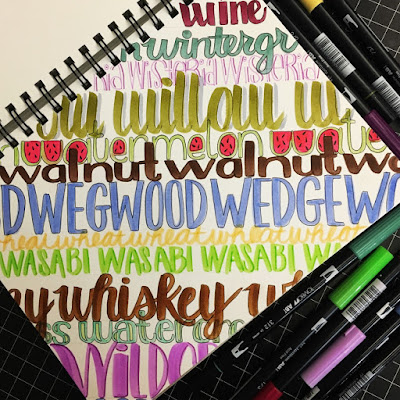 wine
n wintergr
RiA WiSTeRiA WiSTeRiA
ow willow w
watermelon wate
walnut walnut wa
D WEGWOOD WEDGEWO
heat wheat wheat wheat wheat
WASABI WASABI WASABI WASABI
ey whiskey wh
ss water
WILD OR
312